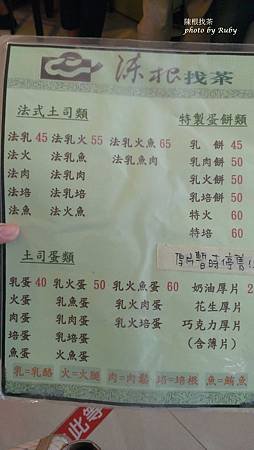 陳根找茶
photo by Ruby
陳根找茶
法式土司類
法乳 45 法乳火 55 法乳火魚 65
法火 法乳魚 法乳魚肉
法肉 法乳肉
法培 法乳培
法魚 法火魚
特製蛋餅類
乳 餅 45
乳肉餅 50
乳火餅 50
乳魚餅 50
乳培餅 50
特火 60
特培 60
厚片暫時停售
土司蛋類
乳蛋 40 乳火蛋 50 乳火魚蛋 60
火蛋 乳魚蛋 乳火肉蛋
肉蛋 乳肉蛋 乳火培蛋
培蛋 乳培蛋
魚蛋 火魚蛋
奶油厚片
花生厚片
巧克力厚片
(含薄片)
乳=乳酪 火=火腿 肉=肉鬆 培=培根 魚=鮪魚
此等